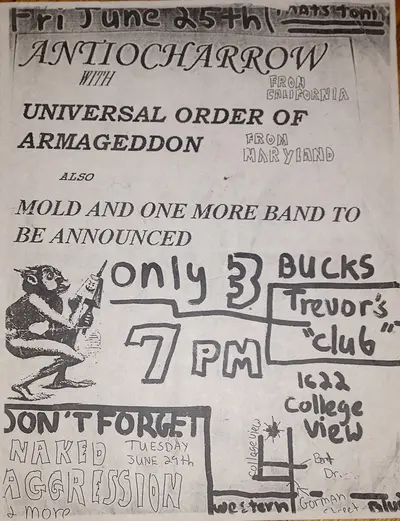 Fri June 25th (that's toni
ANTIOCHARROW
WITH
FROM
CALIFORNIA
UNIVERSAL ORDER OF
ARMAGEDDON
FROM
MARYLAND
ALSO
MOLD AND ONE MORE BAND TO
BE ANNOUNCED
only 3 BUCKS
7 PM
Trevor's
"club"
1622
College
View
DON'T FORGET
NAKED
AGGRESSION
& more
TUESDAY
JUNE 29th
College View
Dr.
Gorman
street
western Blvd